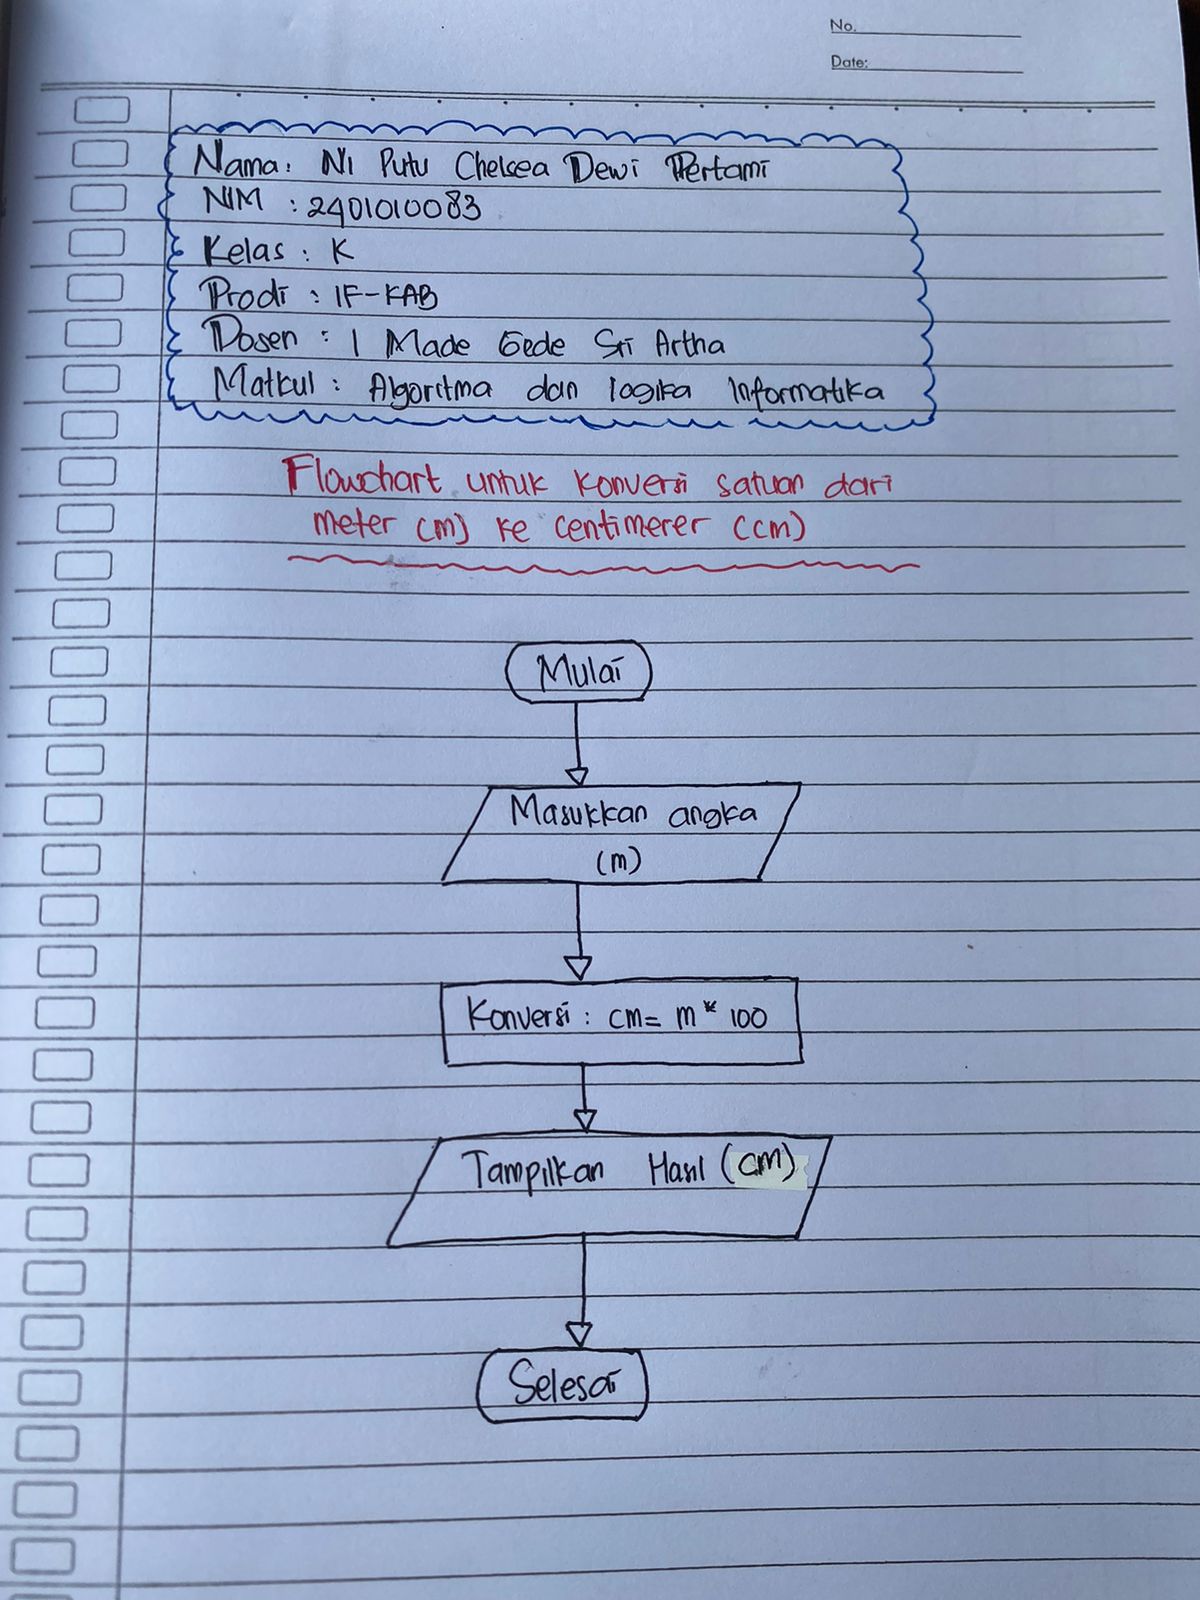 No.
Date:
Nama: Ni Putu Chelsea Dewi Pertami
NIM : 2401010083
Kelas : K
Prodi : IF-KAB
Dosen : I Made Gede Sri Artha
Matkul : Algoritma dan logika Informatika
Flowchart untuk konversi satuan dari
meter (m) ke centimerer (cm)
Mulai
Masukkan angka
(m)
Konversi : cm= m * 100
Tampilkan Hasil (cm)
Selesai